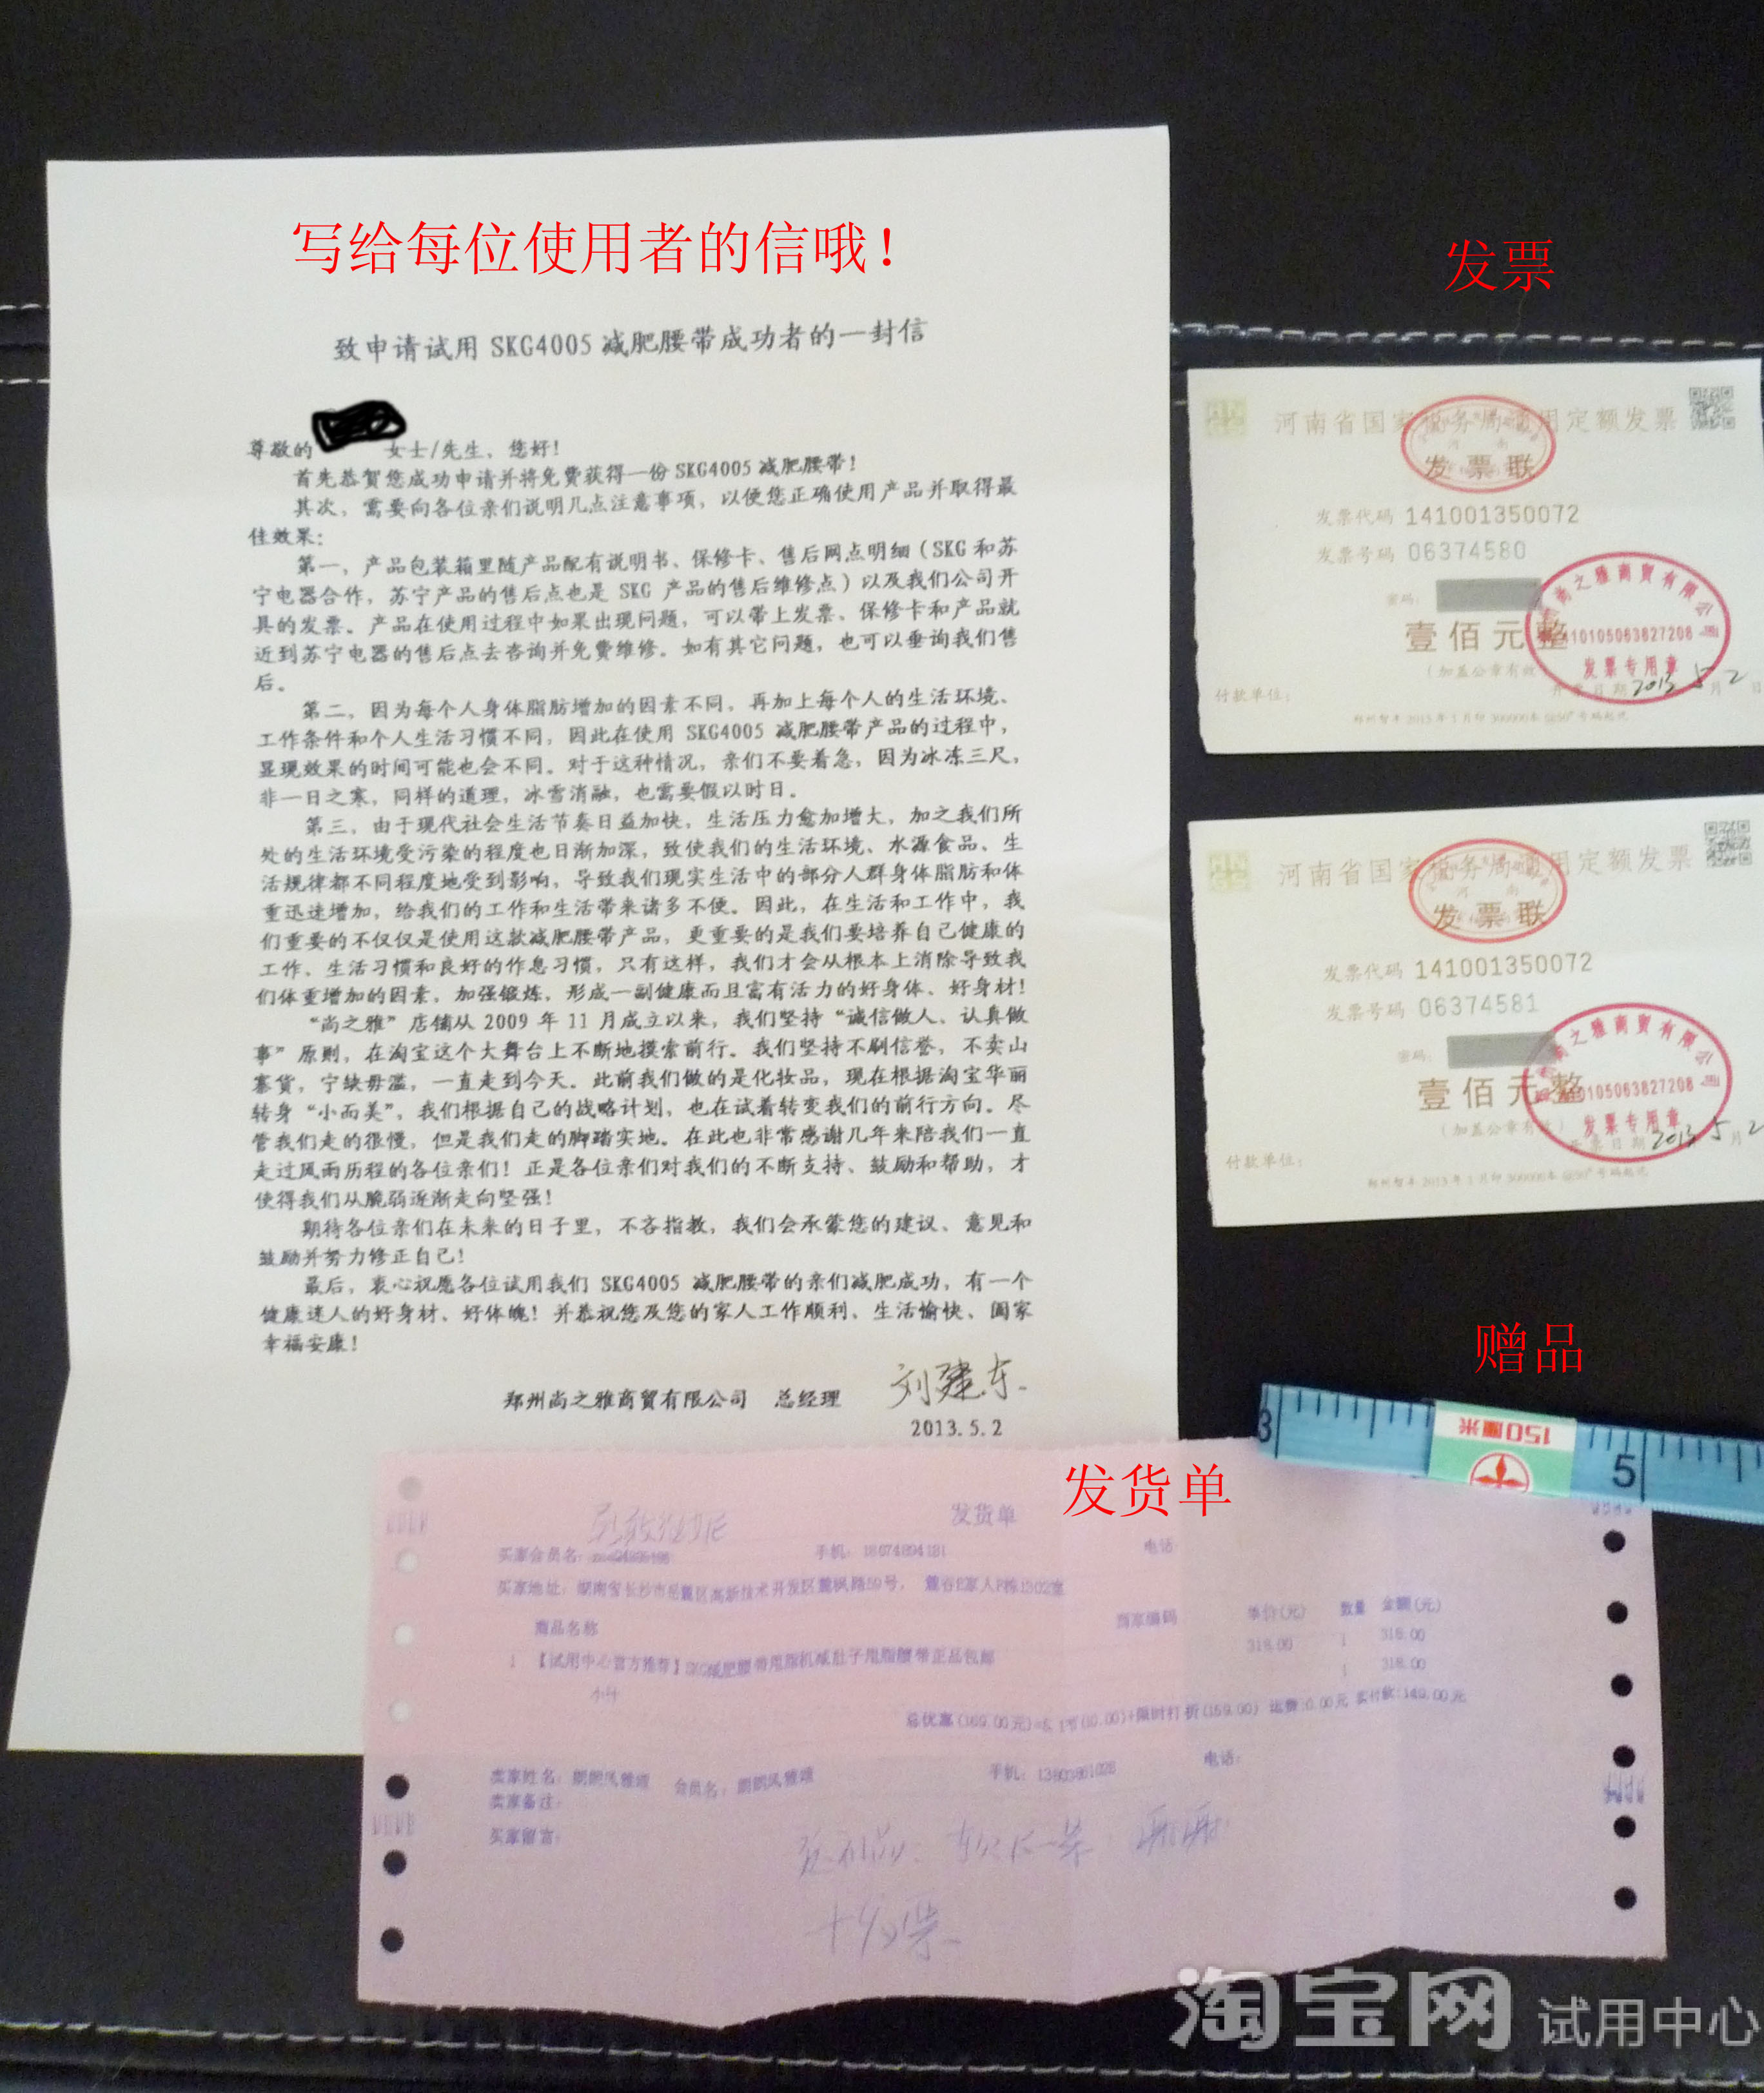 写给每位使用者的信哦！
致申请试用 SKG4005 减肥腰带成功者的一封信
尊敬的 女士/先生，您好！
首先恭贺您成功申请并将免费获得一份 SKG4005 减肥腰带！
其次，需要向各位亲们说明几点注意事项，以便您正确使用产品并取得最
佳效果：
第一，产品包装箱里随产品配有说明书、保修卡、售后网点明细（SKG 和苏
宁电器合作，苏宁产品的售后点也是 SKG 产品的售后维修点）以及我们公司开
具的发票。产品在使用过程中如果出现问题，可以带上发票、保修卡和产品就
近到苏宁电器的售后点去咨询并免费维修。如有其它问题，也可以垂询我们售
后。
第二，因为每个人身体脂肪增加的因素不同，再加上每个人的生活环境、
工作条件和个人生活习惯不同，因此在使用 SKG4005 减肥腰带产品的过程中，
显现效果的时间可能也会不同。对于这种情况，亲们不要着急，因为冰冻三尺，
非一日之寒，同样的道理，冰雪消融，也需要假以时日。
第三，由于现代社会生活节奏日益加快，生活压力愈加增大，加之我们所
处的生活环境受污染的程度也日渐加深，致使我们的生活环境、水源食品、生
活规律都不同程度地受到影响，导致我们现实生活中的部分人群身体脂肪和体
重迅速增加，给我们的工作和生活带来诸多不便。因此，在生活和工作中，我
们重要的不仅仅是使用这款减肥腰带产品，更重要的是我们要培养自己健康的
工作、生活习惯和良好的作息习惯，只有这样，我们才会从根本上消除导致我
们体重增加的因素，加强锻炼，形成一副健康而且富有活力的好身体、好身材！
“尚之雅”店铺从 2009 年 11 月成立以来，我们坚持“诚信做人、认真做
事”原则，在淘宝这个大舞台上不断地摸索前行。我们坚持不刷信誉，不卖山
寨货，宁缺毋滥，一直走到今天。此前我们做的是化妆品，现在根据淘宝华丽
转身“小而美”，我们根据自己的战略计划，也在试着转变我们的前行方向。尽
管我们走的很慢，但是我们走的脚踏实地。在此也非常感谢几年来陪我们一直
走过风雨历程的各位亲们！正是各位亲们对我们的不断支持、鼓励和帮助，才
使得我们从脆弱逐渐走向坚强！
期待各位亲们在未来的日子里，不吝指教，我们会承蒙您的建议、意见和
鼓励并努力修正自己！
最后，衷心祝愿各位试用我们 SKG4005 减肥腰带的亲们减肥成功，有一个
健康迷人的好身材、好体魄！并恭祝您及您的家人工作顺利、生活愉快、阖家
幸福安康！
郑州尚之雅商贸有限公司 总经理 刘建东
2013.5.2
发票
河南省国家税务局通用定额发票
发票联
发票代码 141001350072
发票号码 06374580
密码：
壹佰元整
尚之雅商贸有限公司
410105063827208
发票专用章
（加盖公章有效）
开票日期 2013 5 月 2 日
付款单位：
河南省国家税务局通用定额发票
发票联
发票代码 141001350072
发票号码 06374581
密码：
壹佰元整
尚之雅商贸有限公司
0105063827208
发票专用章
（加盖公章有效）
开票日期 2013 5 月 2
付款单位：
赠品
3
150厘米
5
发货单
发货单
买家会员名：
手机：18674894181
电话：
买家地址：湖南省长沙市岳麓区高新技术开发区麓枫路59号， 麓谷E家人F栋1302室
商品名称 商家编码 单价(元) 数量 金额(元)
1 【试用中心官方推荐】SKG减肥腰带甩脂机减肚子甩脂腰带正品包邮 318.00 1 318.00
1 318.00
小计
运费:0.00元 实付款:149.00元
卖家姓名：朗朗风雅颂 会员名：朗朗风雅颂 手机： 电话：
卖家备注：
买家留言：
淘宝网 试用中心